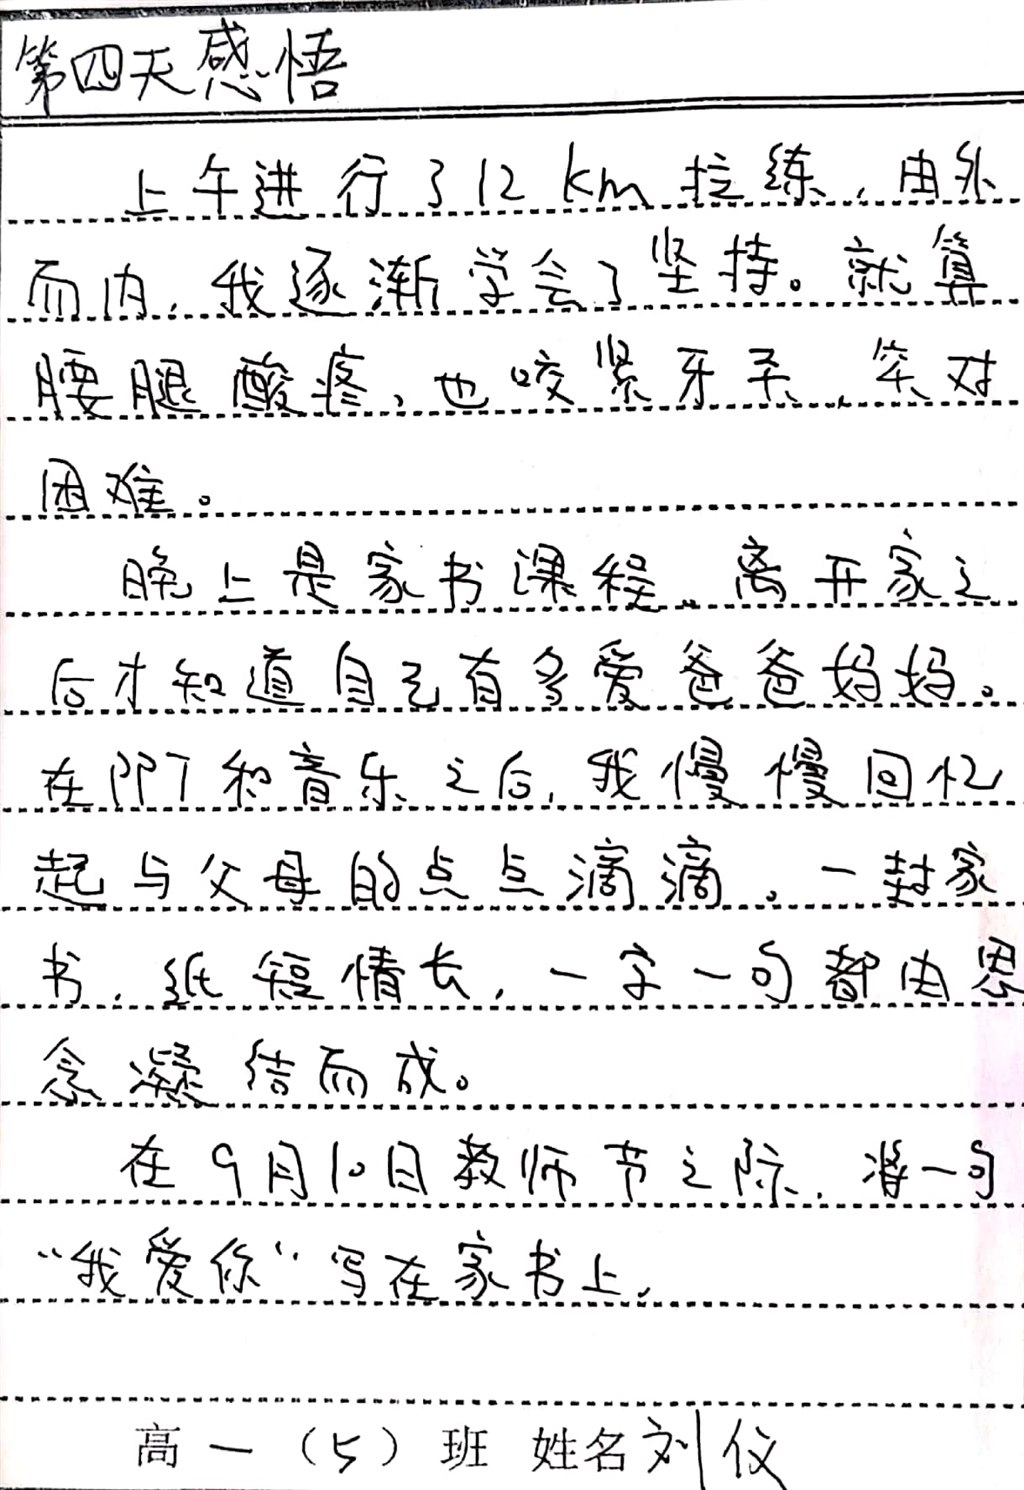 第四天感悟
上午进行了12km拉练，由外
而内，我逐渐学会了坚持。就算
腰腿酸疼，也咬紧牙关，笑对
困难。
晚上是家书课程。离开家之
后才知道自己有多爱爸爸妈妈。
在PPT和音乐之后，我慢慢回忆
起与父母的点点滴滴。一封家
书，纸短情长，一字一句都由思
念凝结而成。
在9月10日教师节之际，将一句
“我爱你”写在家书上。
高一（5）班 姓名刘仪